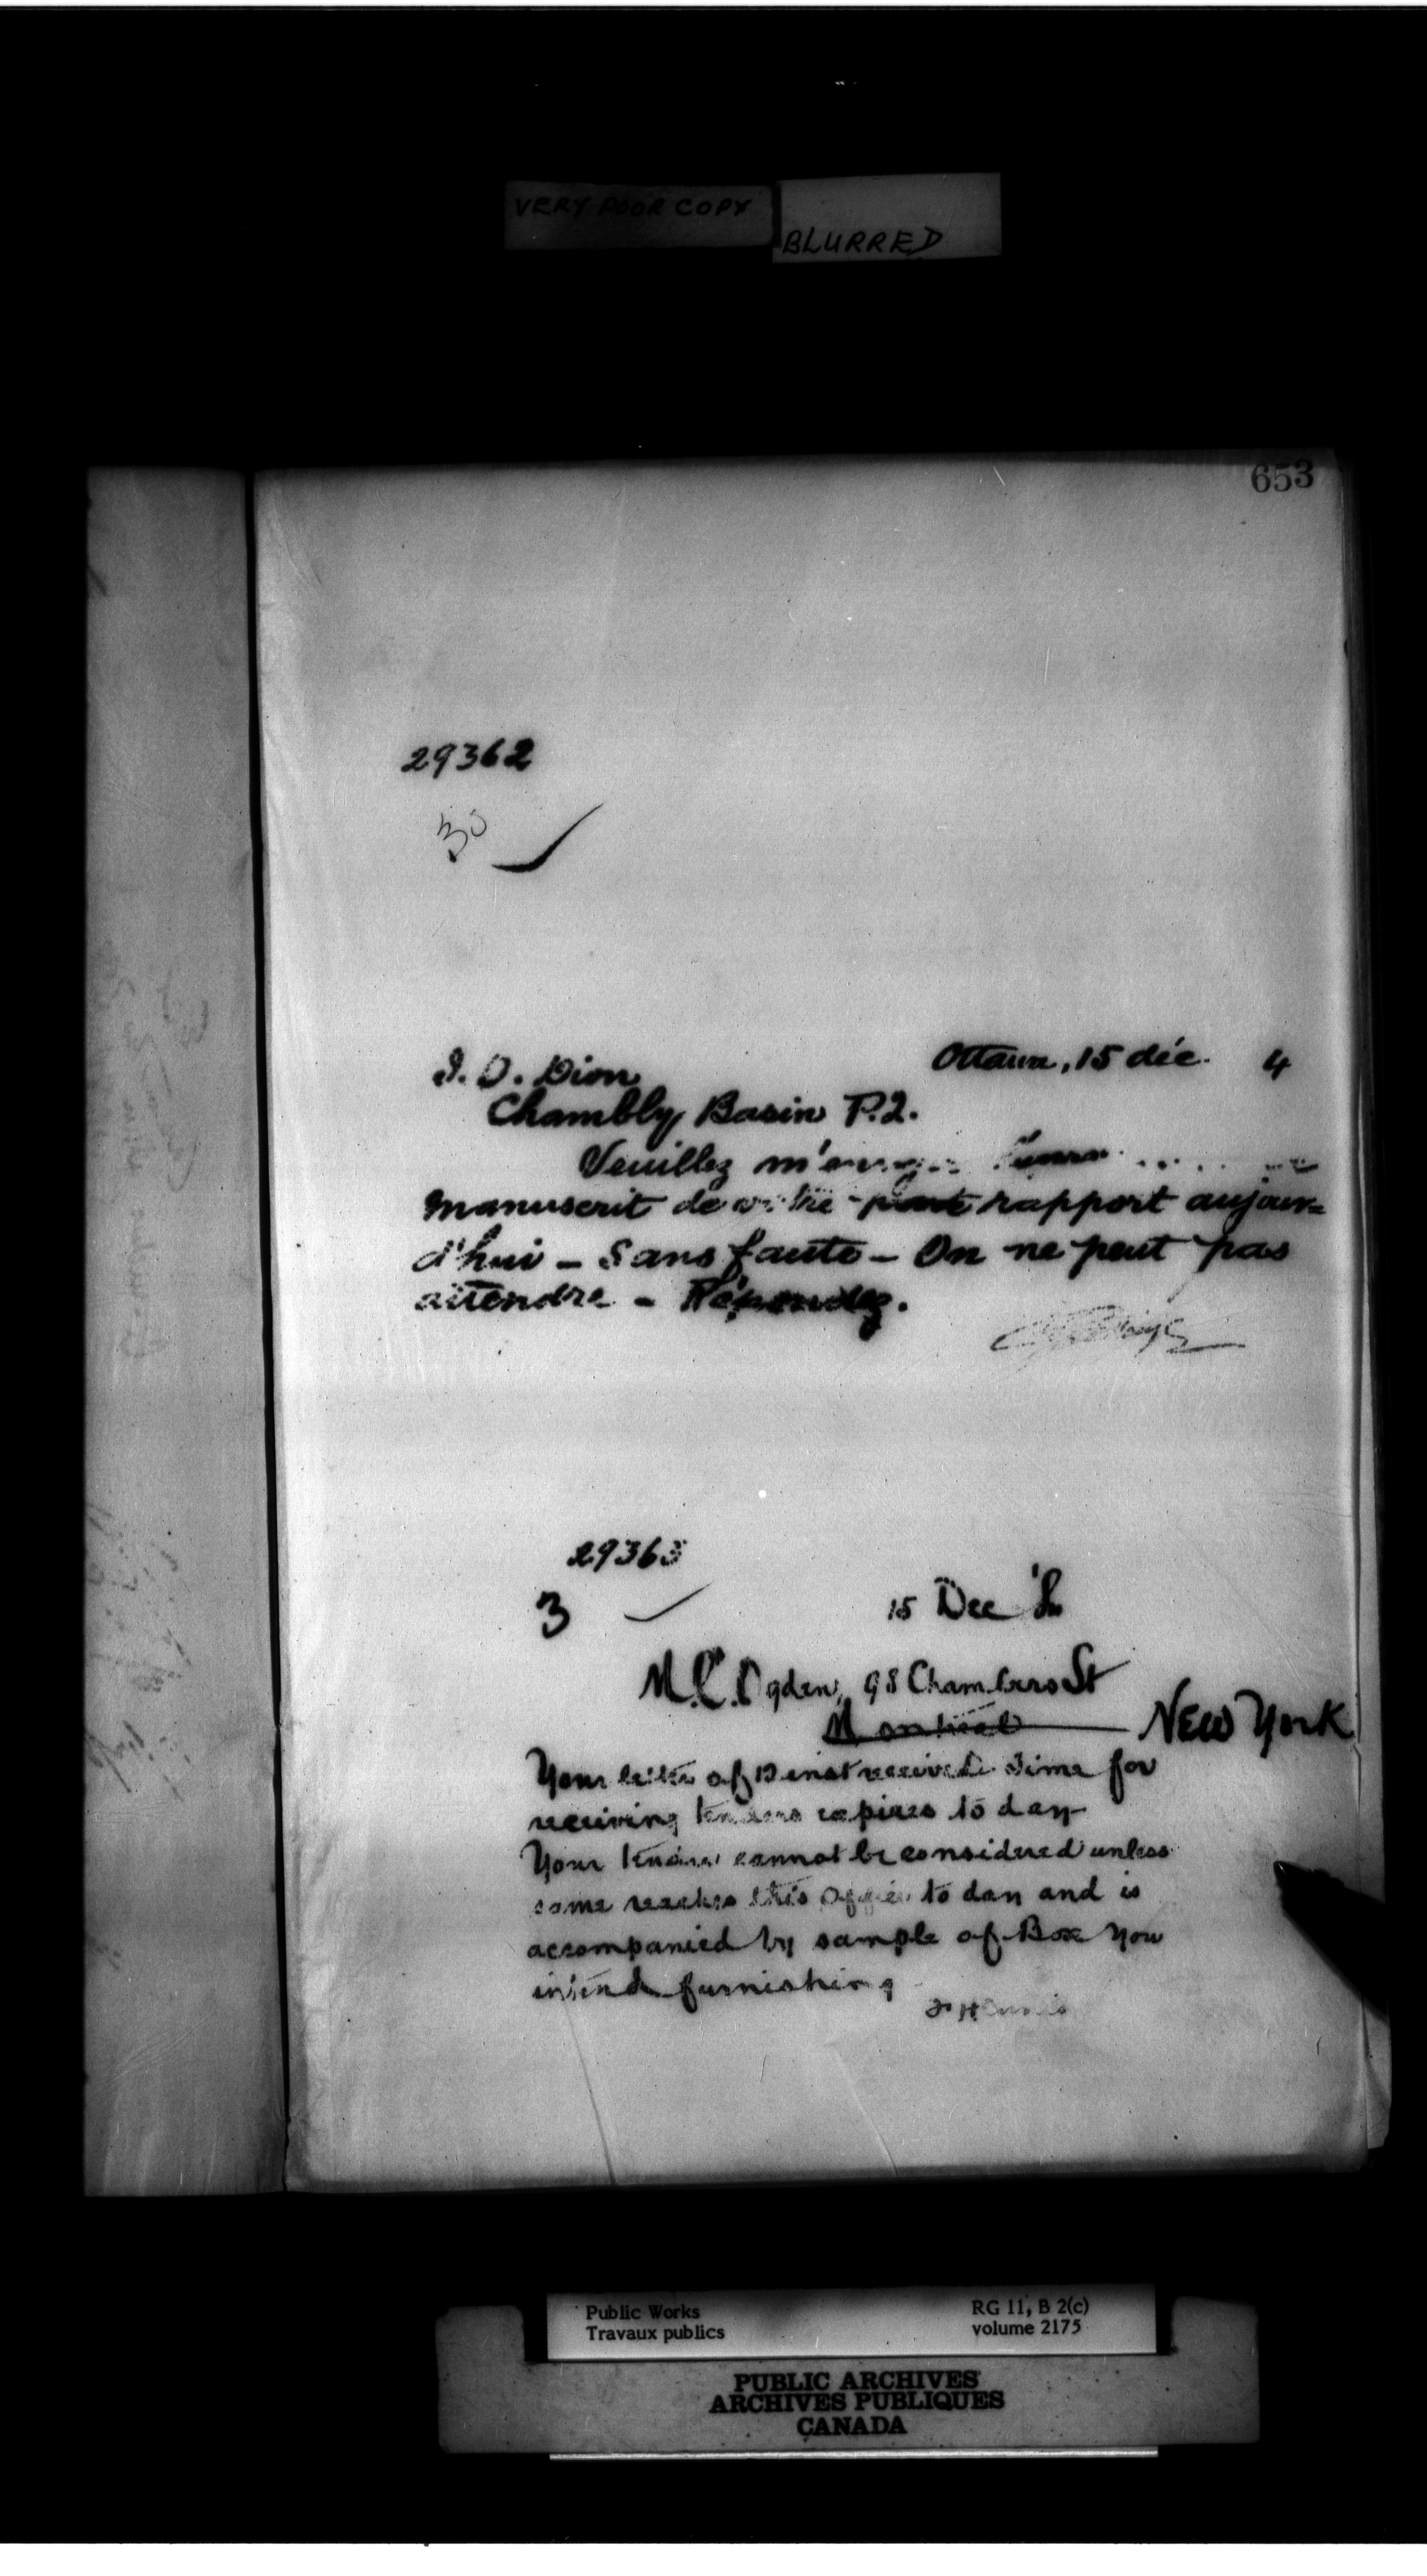 VERY POOR COPY
BLURRED
653
29362
30
Ottawa, 15 déc. 4
J. O. Dion
Chambly Basin P.Q.
Veuillez
manuscrit de votre rapport aujour=
d'hui - Sans faute - On ne peut pas
attendre - Répondez.
29363
3
15 Dec
M.C. Ogden, 98 Chambers St
Montreal New York
Your letter of 12 inst received. Time for
receiving tenders expires to day
Your tender cannot be considered unless
same reaches this office to day and is
accompanied by sample of Box you
intend furnishing
Public Works RG 11, B 2(c)
Travaux publics volume 2175
PUBLIC ARCHIVES
ARCHIVES PUBLIQUES
CANADA